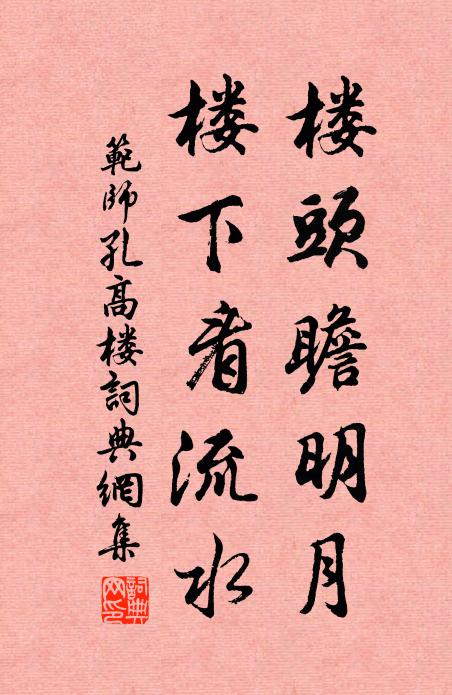 楼頭瞻明月
楼下看流水
範師孔高楼詞典網集
詞典
网印